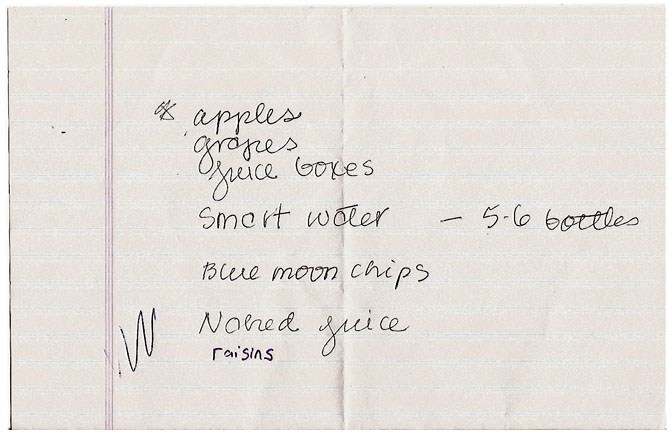 * apples
grapes
juice boxes
Smart water — 5-6 bottles
Blue moon chips
Naked juice
raisins